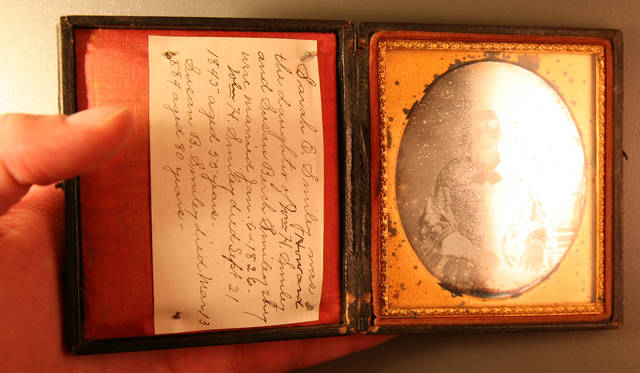 Sarah E. Smiley was
the daughter of Howard
Wm H. Smiley
and Susan B. Smiley they
were married Jan. 6. 1826.
Wm H. Smiley died Sept. 21
1845 aged 55 years.
Susan B. Smiley died Mar. 13
1884 aged 80 years -